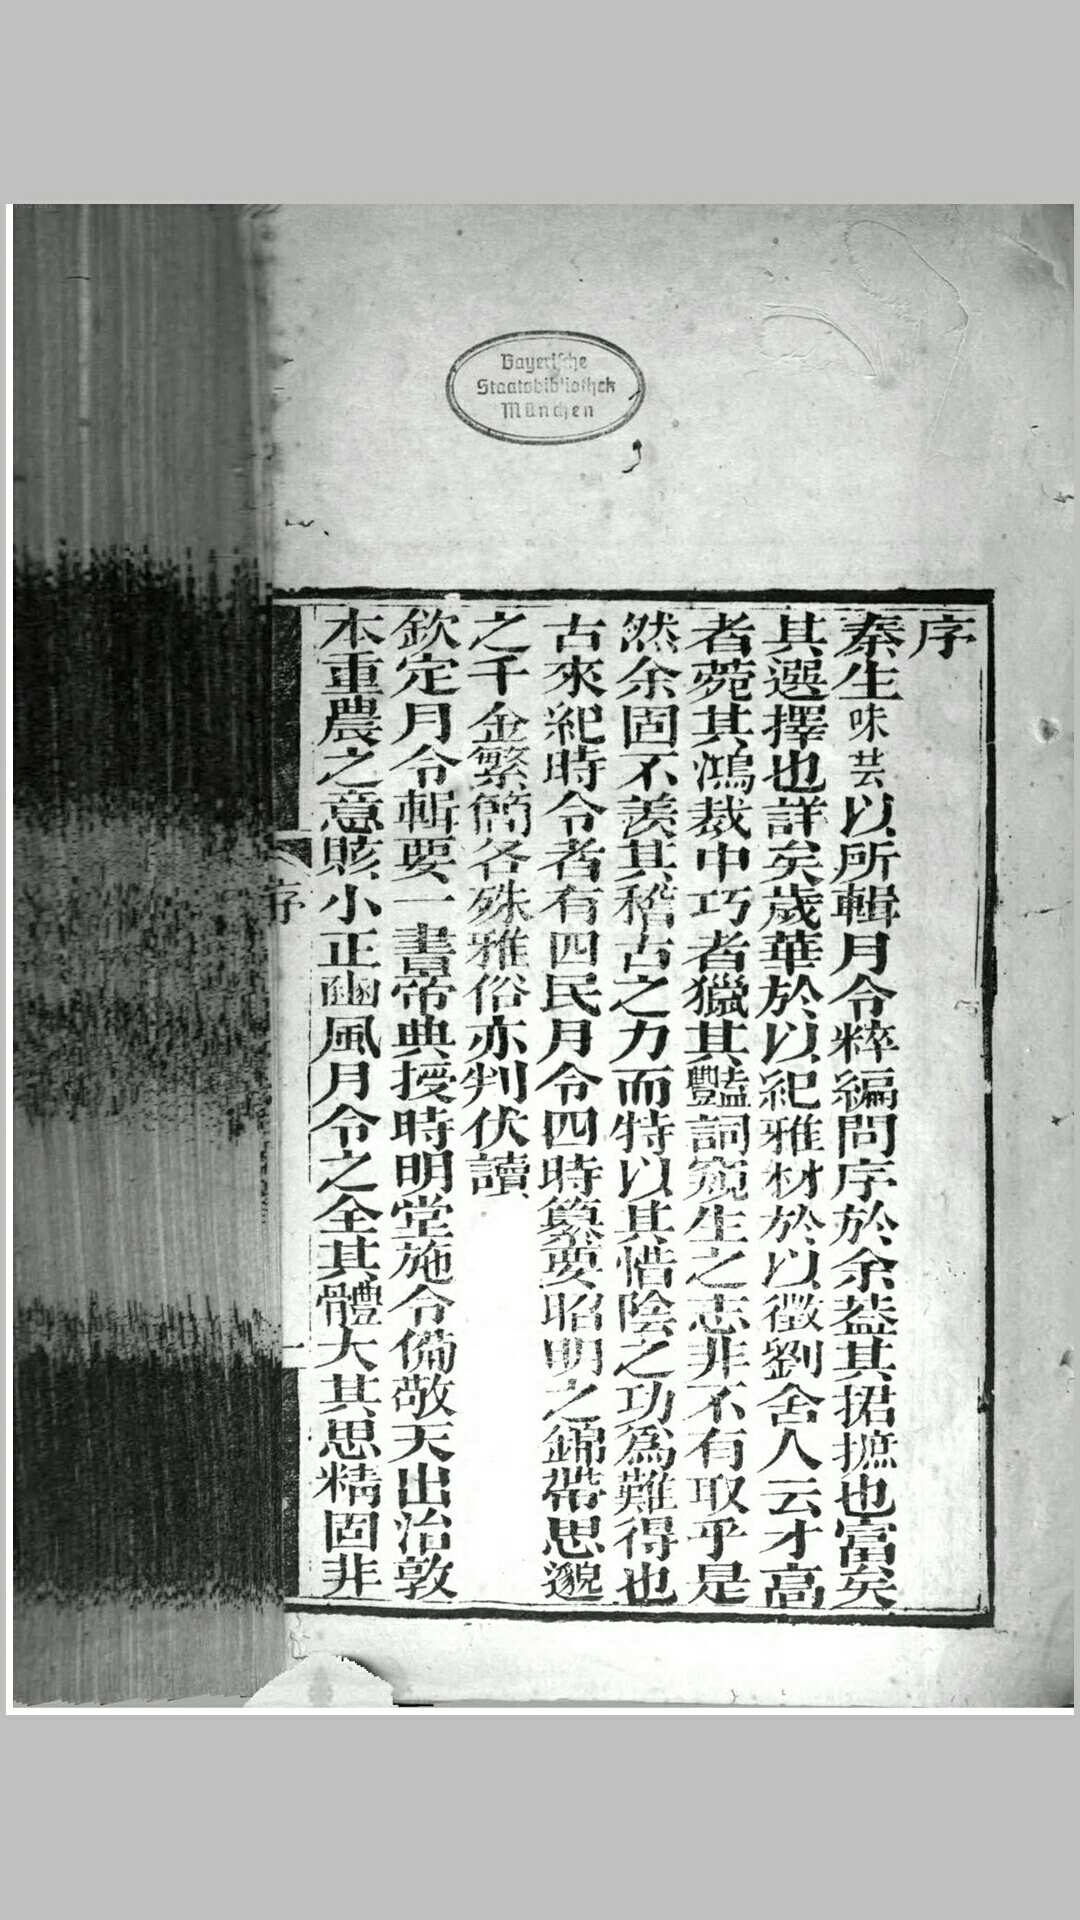 Bayerische
Staatsbibliothek
München
序
秦生味芸以所輯月令粹編問序於余葢其捃摭也富矣
其選擇也詳矣歲華於以紀雅材於以徵劉舍人云才高
者菀其鴻裁中巧者獵其豔詞窺生之志非不有取乎是
然余固不羨其稽古之力而特以其惜陰之功為難得也
古來紀時令者有四民月令四時纂要昭明之錦帶思邈
之千金繁簡各殊雅俗亦判伏讀
欽定月令輯要一書帝典授時明堂施令備敬天出治敦
本重農之意賅小正豳風月令之全其體大其思精固非
序
一